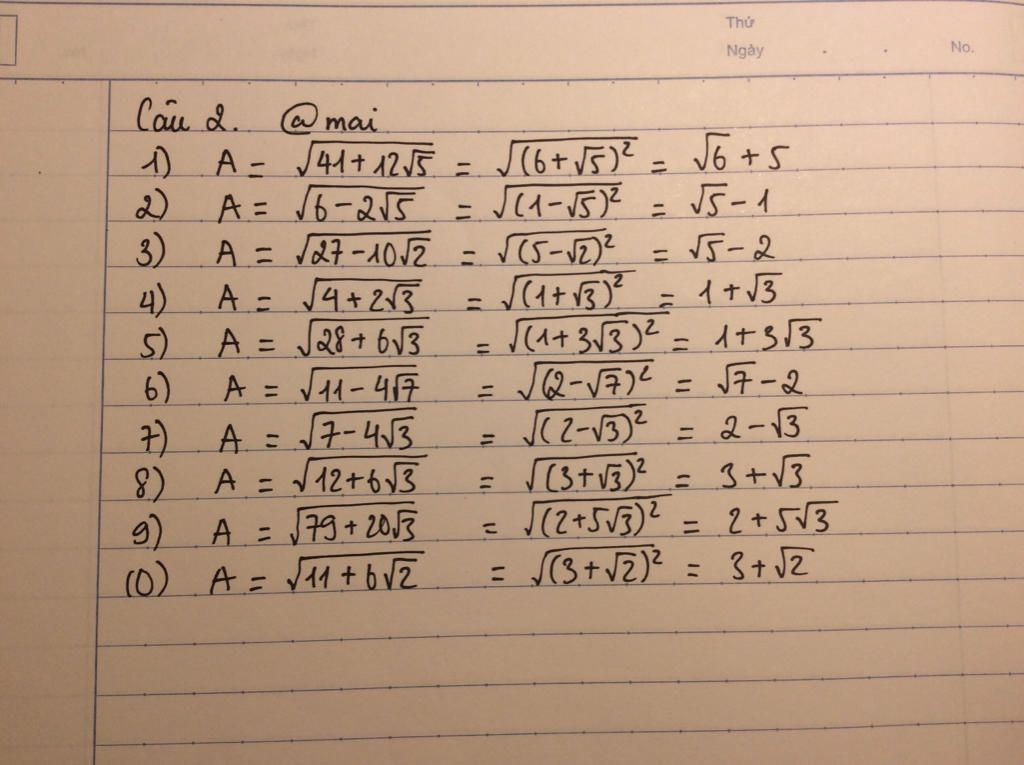 Thứ
Ngày . . No.
Câu 2. @mai
1) A = √(41+12√5) = √((6+√5)²) = √6 + 5
2) A = √(6-2√5) = √((1-√5)²) = √5 - 1
3) A = √(27-10√2) = √((5-√2)²) = √5 - 2
4) A = √(4+2√3) = √((1+√3)²) = 1+√3
5) A = √(28+6√3) = √((1+3√3)²) = 1+3√3
6) A = √(11-4√7) = √((2-√7)²) = √7-2
7) A = √(7-4√3) = √((2-√3)²) = 2-√3
8) A = √(12+6√3) = √((3+√3)²) = 3+√3
9) A = √(79+20√3) = √((2+5√3)²) = 2+5√3
10) A = √(11+6√2) = √((3+√2)²) = 3+√2